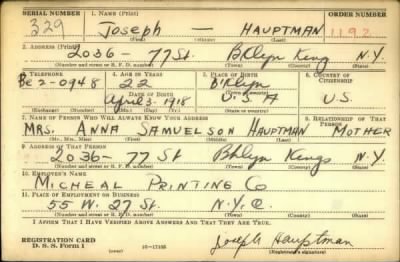 SERIAL NUMBER 1. NAME (Print) ORDER NUMBER
329 JOSEPH — HAUPTMAN 1192
(First) (Middle) (Last)
2. ADDRESS (Print)
2036 - 77 St BKlyn King N.Y.
(Number and street or R. F. D. number) (Town) (County) (State)
3. TELEPHONE 4. AGE IN YEARS 5. PLACE OF BIRTH 6. COUNTRY OF CITIZENSHIP
Be 2-0948 22 BKlyn
DATE OF BIRTH
April 3 1918 U.S.A U.S.
(Exchange) (Number) (Mo.) (Day) (Yr.) (State or country)
7. NAME OF PERSON WHO WILL ALWAYS KNOW YOUR ADDRESS 8. RELATIONSHIP OF THAT PERSON
MRS. ANNA SAMUELSON HAUPTMAN MOTHER
(Mr., Mrs., Miss) (First) (Middle) (Last)
9. ADDRESS OF THAT PERSON
2036 - 77 St Bklyn Kings N.Y.
(Number and street or R. F. D. number) (Town) (County) (State)
10. EMPLOYER'S NAME
MICHEAL PRINTING Co
11. PLACE OF EMPLOYMENT OR BUSINESS
55 W. 27 St. N.Y.C.
(Number and street or R. F. D. number) (Town) (County) (State)
I AFFIRM THAT I HAVE VERIFIED ABOVE ANSWERS AND THAT THEY ARE TRUE.
REGISTRATION CARD
D. S. S. Form 1 (over) 16-17105 Joseph Hauptman
(Registrant's signature)